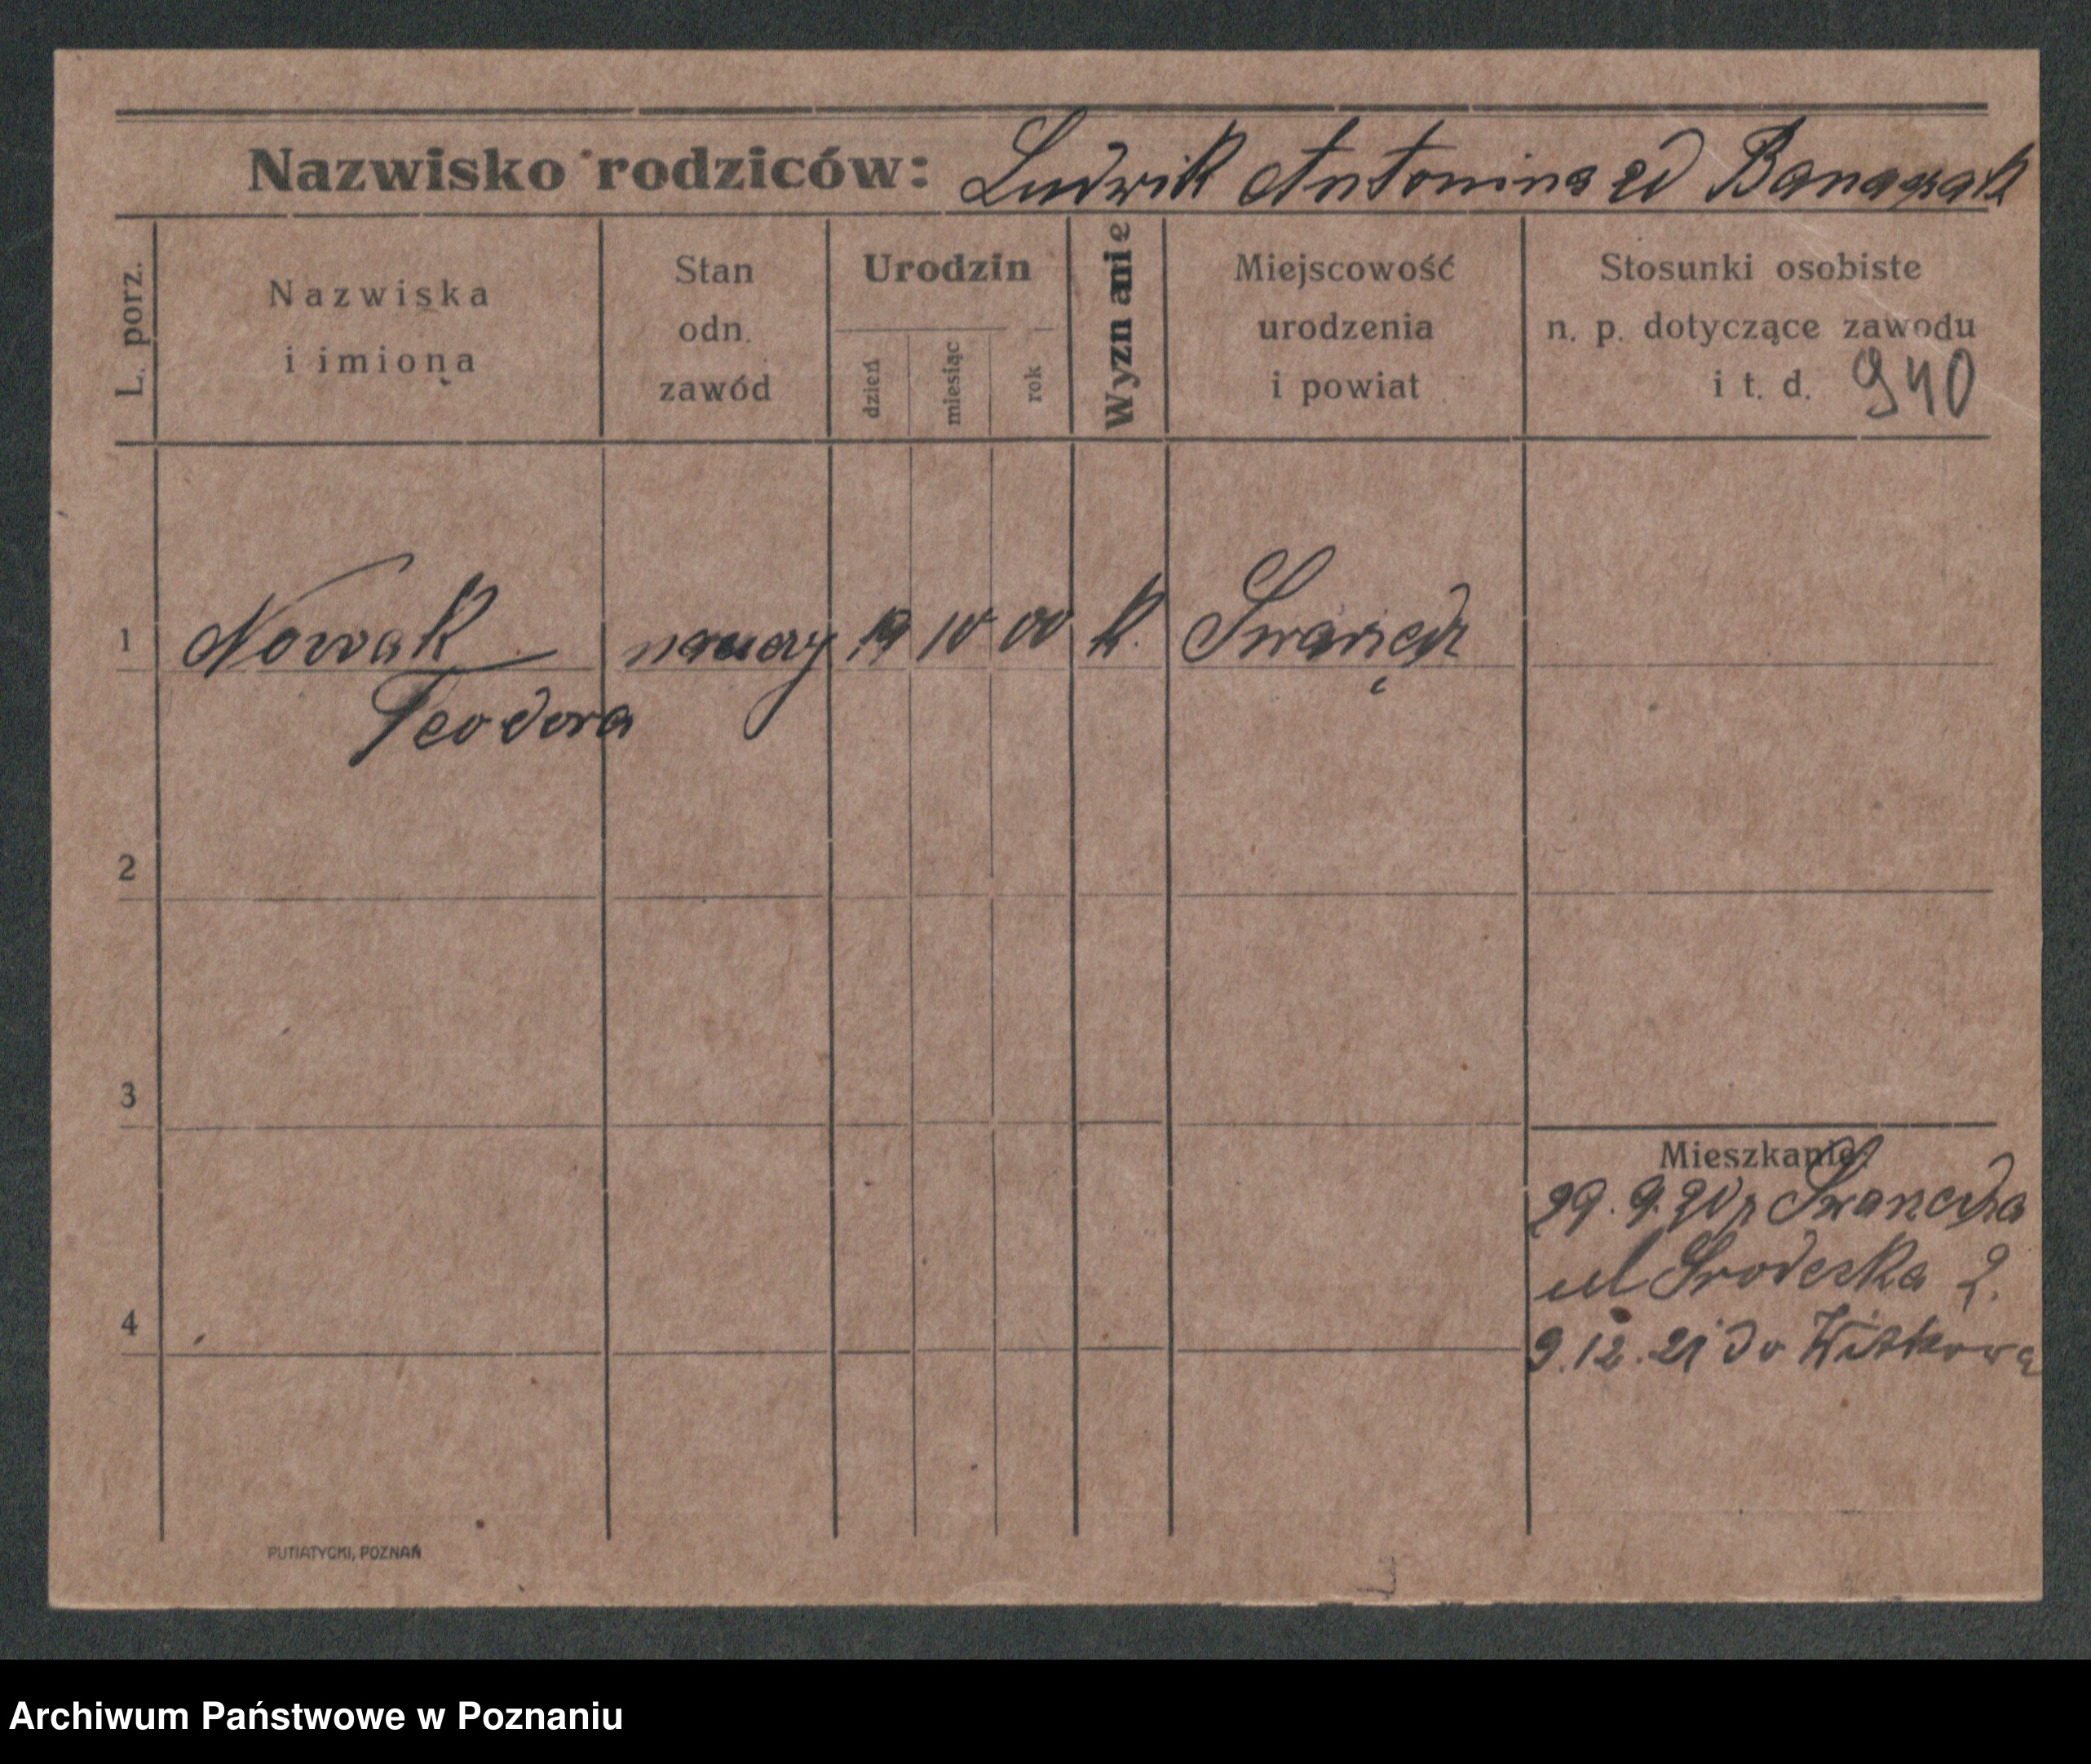 Nazwisko rodziców: Ludwik Antonina zd Banaszak
L. porz.
Nazwiska
i imiona
Stan
odn.
zawód
Urodzin
dzień
miesiąc
rok
Wyznanie
Miejscowość
urodzenia
i powiat
Stosunki osobiste
n. p. dotyczące zawodu
i t. d. 940
1 Nowak 10 00 k. Swarzędz
Teodora
2
3
Mieszkanie:
29.9.20 z Swarzędza
ul Środecka 2.
4
9.12.21 do Witkowa
PUTIATYCKI, POZNAŃ
Archiwum Państwowe w Poznaniu